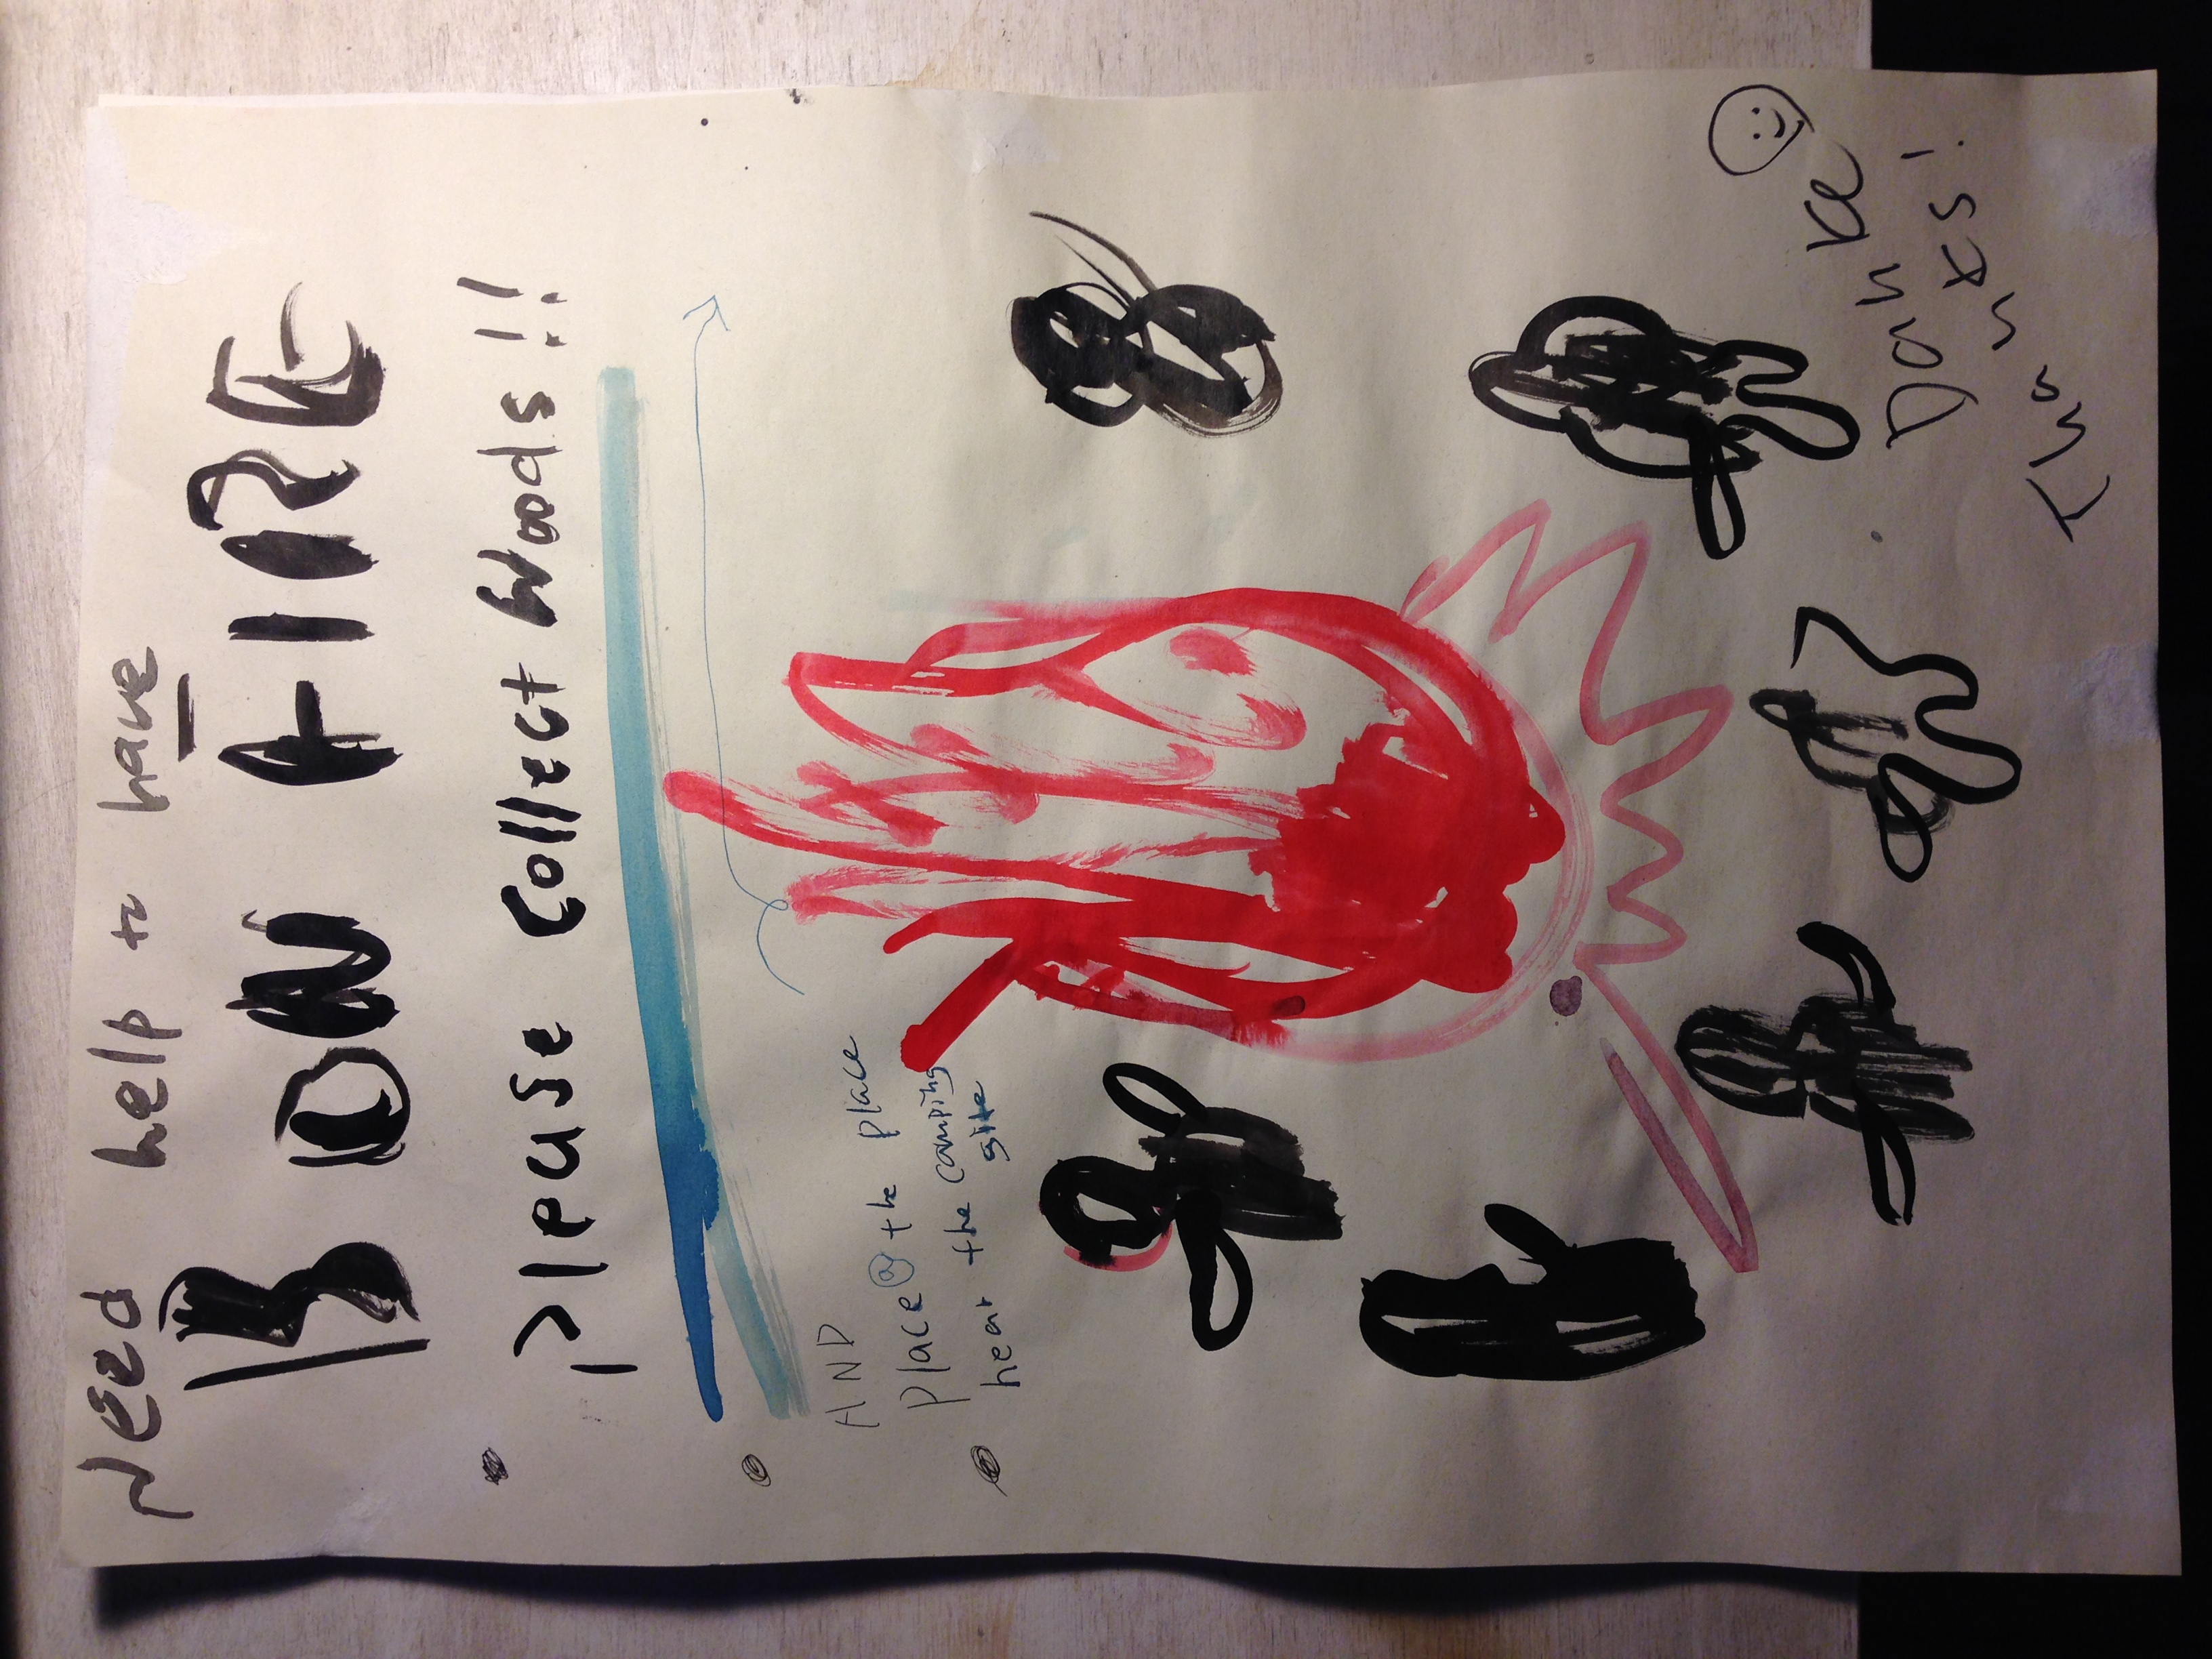 Need help to have
BON FIRE
Please collect Woods!!
AND
Place @ the place
near the camping
site
Danke
Thanks!